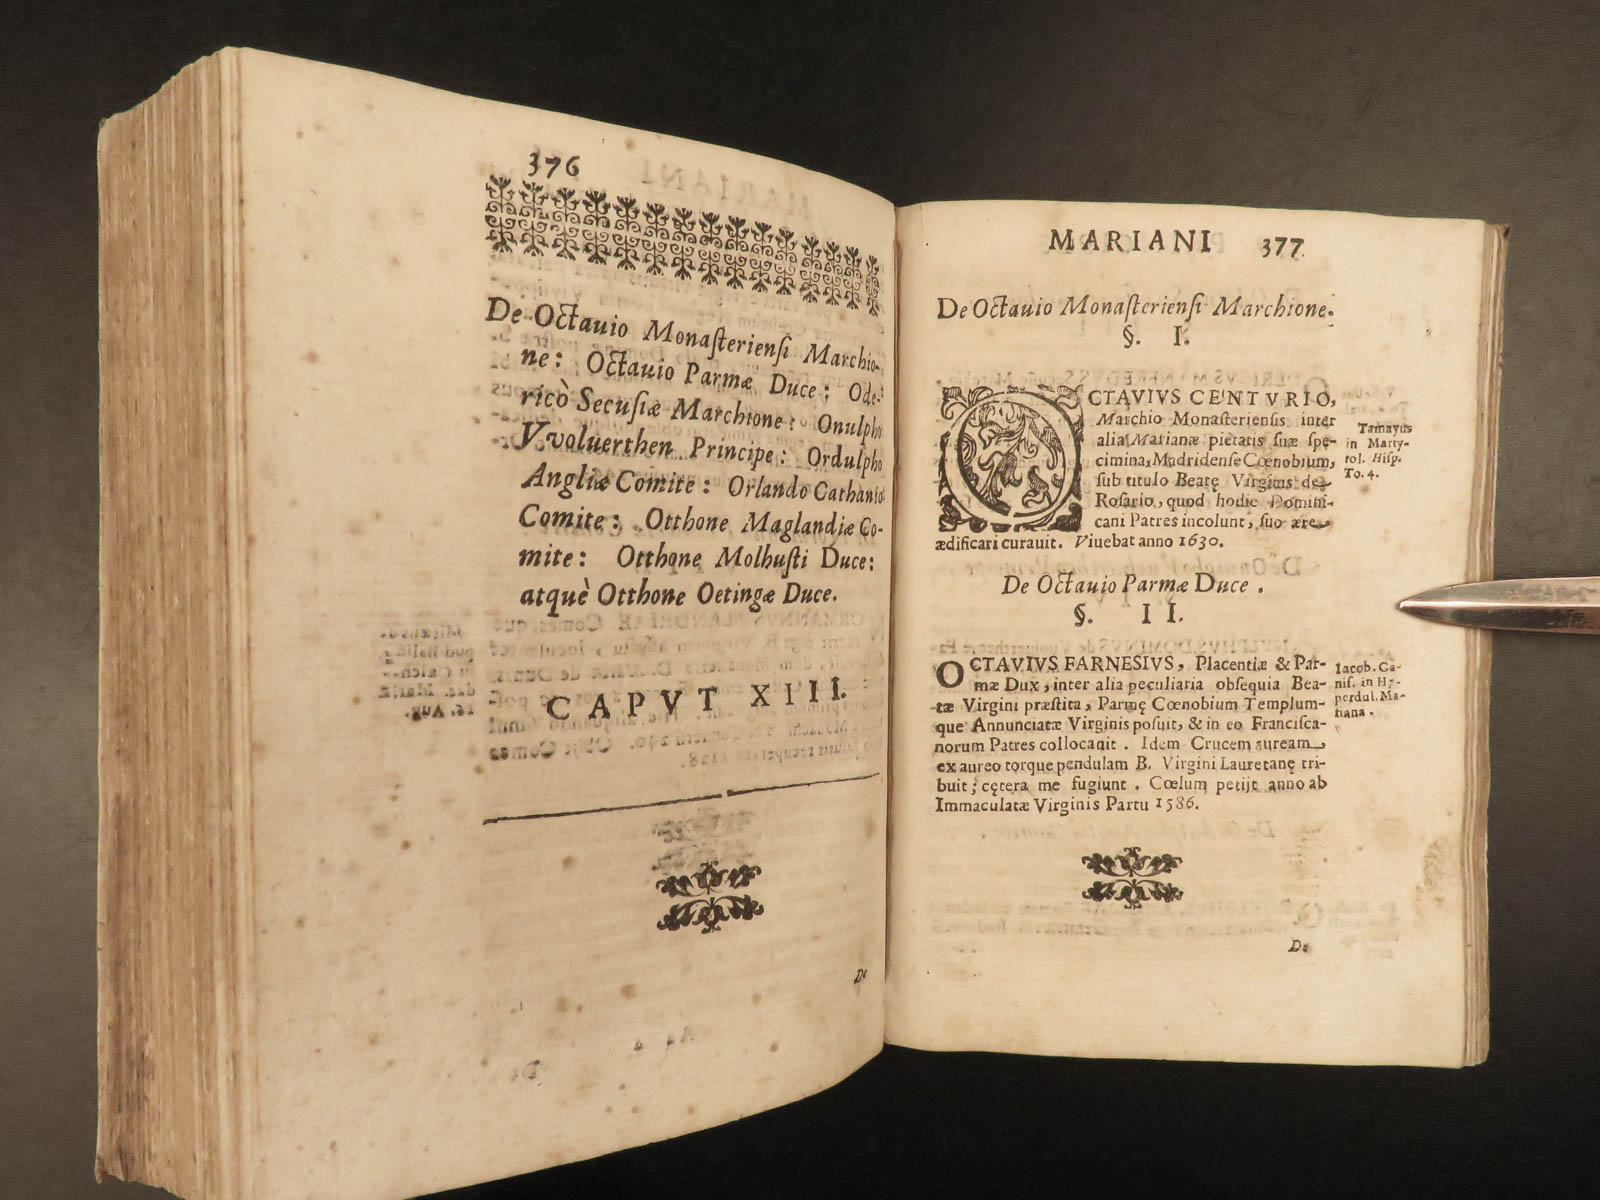 376
De Octauio Monasteriensi Marchio-
ne: Octauio Parmæ Duce: Ode-
ricò Secusiæ Marchione: Onulpho
Vvoluerthen Principe: Ordulpho
Angliæ Comite: Orlando Cathanio
Comite: Otthone Maglandiæ Co-
mite: Otthone Molhusti Duce:
atquè Otthone Oetingæ Duce.
CAPVT XIII.
De
MARIANI 377.
De Octauio Monasteriensi Marchione.
§. I.
OCTAVIVS CENTVRIO,
Marchio Monasteriensis inter
alia Marianæ pietatis suæ spe-
cimina, Madridense Cœnobium,
sub titulo Beatę Virginis de
Rosario, quod hodie Domini-
cani Patres incolunt, suo ære
ædificari curauit. Viuebat anno 1630.
Tamayus
in Marty-
rol. Hisp.
To. 4.
De Octauio Parmæ Duce.
§. II.
OCTAVIVS FARNESIVS, Placentiæ & Par-
mæ Dux, inter alia peculiaria obsequia Bea-
tæ Virgini præstita, Parmę Cœnobium Templum-
que Annunciatæ Virginis posuit, & in eo Francisca-
norum Patres collocauit. Idem Crucem auream
ex aureo torque pendulam B. Virgini Lauretanę tri-
buit; cętera me fugiunt. Cœlum petijt anno ab
Immaculatæ Virginis Partu 1586.
Iacob. Ca-
nis. in Hy-
perdul. Ma-
riana.
De